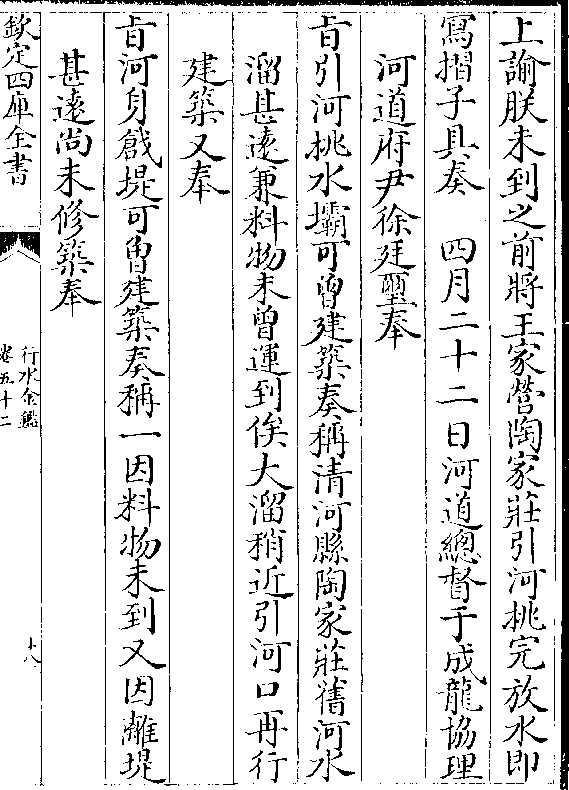 上諭朕未到之前將王家營陶家莊引河挑完放水即
寫摺子具奏　四月二十二日河道總督于成龍協理
河道府尹徐廷璽奉
旨引河挑水壩可曾建築奏稱清河縣陶家莊舊河水
溜甚遠兼料物未曾運到俟大溜稍近引河口再行
建築又奉
旨河身戧堤可曾建築奏稱一因料物未到又因離堤
甚遠尚未修築奉
欽定四庫全書
行水金鑑
卷五十二
十八